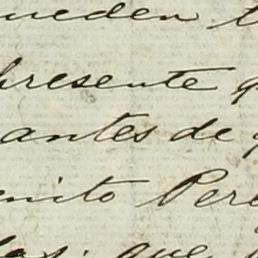 ueden t
presente q
antes de q
enito Pere
los. que